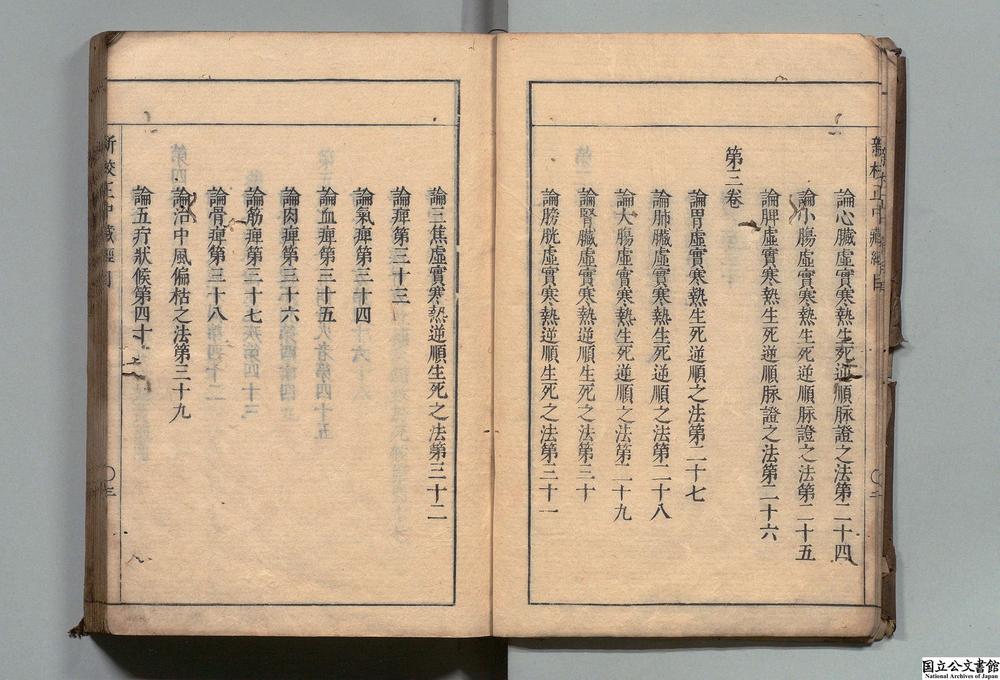 論心臟虛實寒熱生死逆順脉證之法第二十四
論小腸虛實寒熱生死逆順脉證之法第二十五
論脾虛實寒熱生死逆順脉證之法第二十六
第三卷
論胃虛實寒熱生死逆順之法第二十七
論肺臟虛實寒熱生死逆順之法第二十八
論大腸虛實寒熱生死逆順之法第二十九
論腎臟虛實寒熱逆順生死之法第三十
論膀胱虛實寒熱逆順生死之法第三十一
論三焦虛實寒熱逆順生死之法第三十二
論痺第三十三
論氣痺第三十四
論血痺第三十五
論肉痺第三十六
論筋痺第三十七
論骨痺第三十八
論治中風偏枯之法第三十九
論五疔狀候第四十
新校正中藏經目
国立公文書館
National Archives of Japan